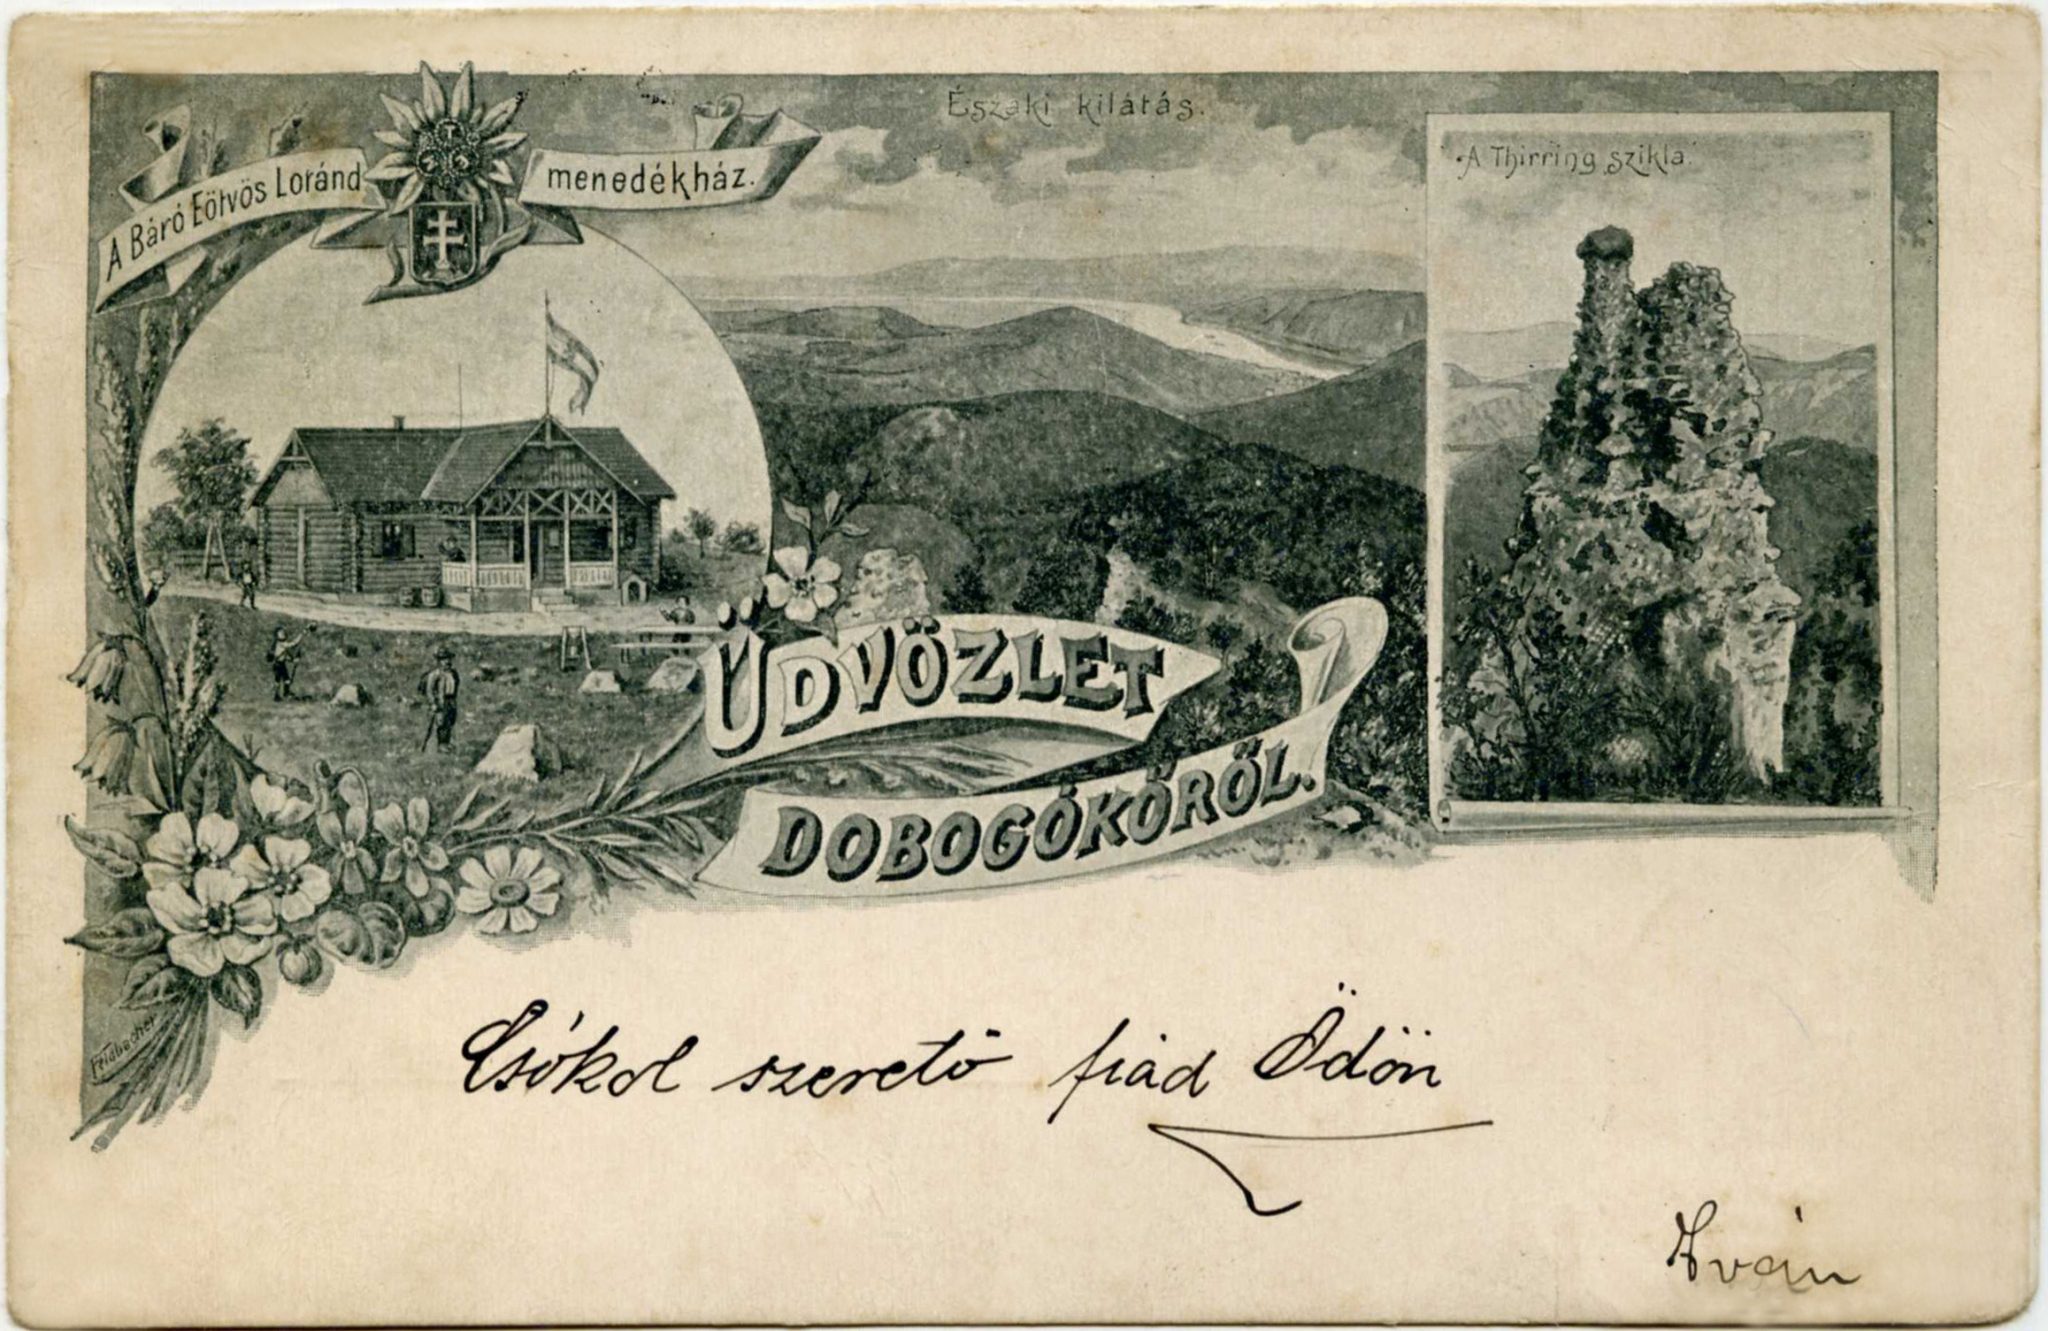 A Báró Eötvös Loránd menedékház.
Északi kilátás.
A Thirring szikla.
ÜDVÖZLET
DOBOGÓKŐRŐL.
Feldbacher
Csókol szerető fiad Ödön
Iván